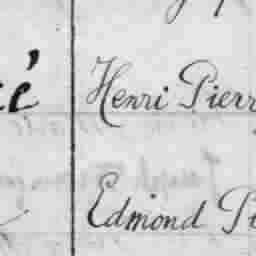 cé Henri Pierr
Edmond Pi